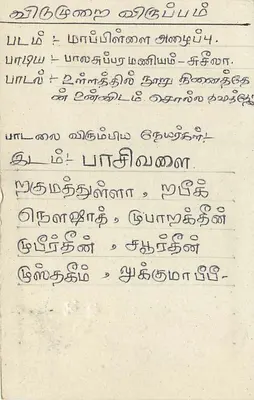 விடுமுறை விருப்பம்
படம் :- மாப்பிள்ளை அழைப்பு.
பாடிய :- பாலசுப்ரமணியம் - சுசீலா.
பாடல் :- உள்ளத்தில் நூறு நினைத்தே
ன் உன்னிடம் சொல்ல
பாடலை விரும்பிய நேயர்கள் :-
இடம் :- பாசிவளை.
றகுமத்துள்ளா, றபீக்
நௌஷாத், முபாறக்தீன்
முபீர்தீன், சபூர்தீன்
முஸ்தகீம், றுக்குமாபீபீ -